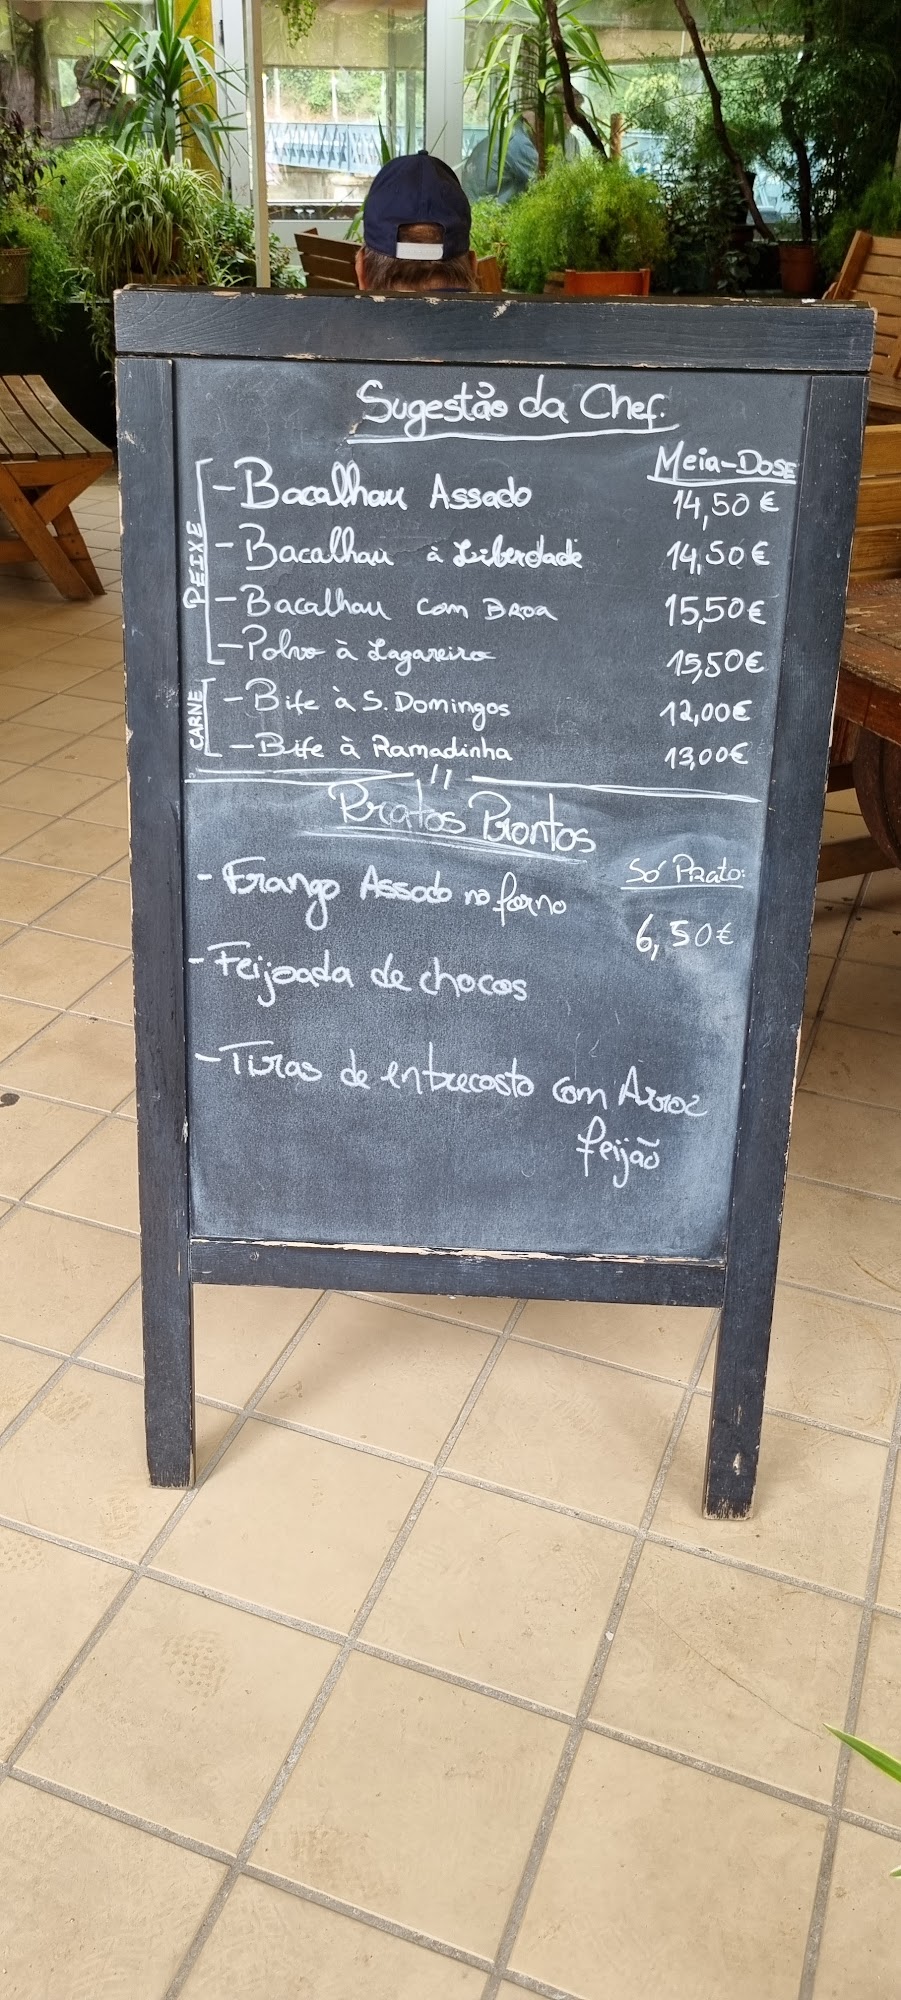 Sugestão da Chef.
Meia-Dose
PEIXE
- Bacalhau Assado 14,50€
- Bacalhau à Liberdade 14,50€
- Bacalhau com Broa 15,50€
- Polvo à Lagareiro 15,50€
CARNE
- Bife à S. Domingos 12,00€
- Bife à Ramadinha 13,00€
Pratos Prontos
Só Prato:
- Frango Assado no forno
6,50€
- Feijoada de chocos
- Tiras de entrecosto com Arroz
feijão